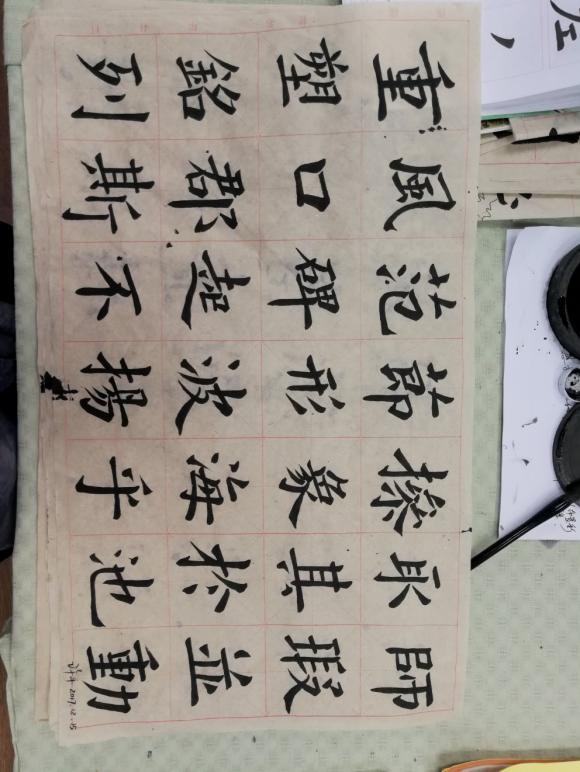 重風范莭操師
塑口碑形象其瑕
銘郡起波海於並
列斯不揚乎池動
2017.12.15
左